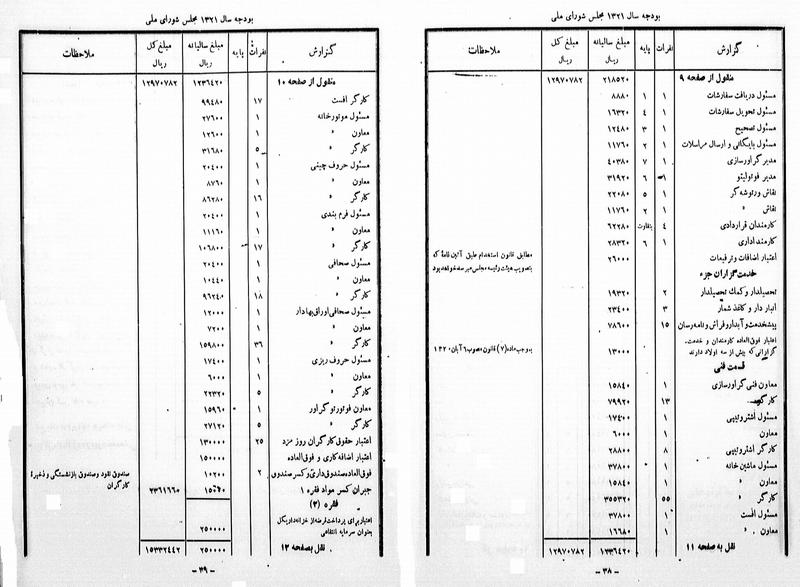 بودجه سال ۱۳۲۱ مجلس شورای ملی
گزارش نفرات پایه مبلغ سالیانه ریال مبلغ کل ریال ملاحظات
منقول از صفحه ۹ ۲۱۸۵۲۰ ۱۲۹۷۰۷۸۲
مسئول دریافت سفارشات ۱ ۱ ۸۸۸۰
مسئول تحویل سفارشات ۱ ۴ ۱۶۳۲۰
مسئول تصحیح ۱ ۳ ۱۲۴۸۰
مسئول بایگانی و ارسال مراسلات ۱ ۲ ۱۱۷۶۰
مدیر گراورسازی ۱ ۷ ۴۰۳۸۰
مدیر فوتولیتو ۱ ۶ ۳۱۹۲۰
نقاش ورتوشه گر ۱ ۵ ۲۲۰۸۰
نقاش » ۱ ۲ ۱۱۷۶۰
کارمندان قراردادی ۴ بتفاوت ۶۲۲۸۰
کارمند اداری ۱ ۶ ۲۸۳۲۰
اعتبار اضافات و ترفیعات ۲۶۰۰۰ مطابق قانون استخدام طبق آئین نامهٔ که
بتصویب هیئت رئیسه مجلس میرسد خواهد بود
خدمت گزاران جزء
تحصیلدار و کمک تحصیلدار ۲ ۱۹۳۲۰
انبار دار و کاغذ شمار ۳ ۲۳۴۰۰
پیشخدمت و آبدار و فراش و نامه رسان ۱۵ ۷۸۶۰۰
اعتبار فوق العاده کارمندان و خدمت
گزارانی که بیش از سه اولاد دارند ۱۳۰۰۰ بموجب ماده (۷) قانون مصوب ۶ آبان ۱۳۲۰
قسمت فنی
معاون فنی گراورسازی ۱ ۱۵۸۴۰
کارگر ۱۳ ۷۹۹۲۰
مسئول اشتروتیپی ۱ ۱۷۴۰۰
معاون ۱ ۶۰۰۰
کارگر اشتروتیپی ۸ ۲۸۸۰۰
مسئول ماشین خانه ۱ ۳۷۸۰۰
معاون » ۱ ۱۵۸۴۰
کارگر » ۵۵ ۳۵۵۳۲۰
مسئول افست ۱ ۳۷۸۰۰
معاون » ۱ ۱۶۶۸۰
نقل به صفحه ۱۱ ۱۲۳۶۴۲۰ ۱۲۹۷۰۷۸۲
- ۳۸ -
بودجه سال ۱۳۲۱ مجلس شورای ملی
گزارش نفرات پایه مبلغ سالیانه ریال مبلغ کل ریال ملاحظات
منقول از صفحه ۱۰ ۱۲۳۶۴۲۰ ۱۲۹۷۰۷۸۲
کارگر افست ۱۷ ۹۹۴۸۰
مسئول موتورخانه ۱ ۲۷۶۰۰
معاون » ۱ ۱۲۶۰۰
کارگر » ۵ ۳۱۶۸۰
مسئول حروف چینی ۱ ۲۰۴۰۰
معاون » ۱ ۸۷۶۰
کارگر » ۱۶ ۸۶۲۸۰
مسئول فرم بندی ۱ ۲۰۴۰۰
معاون » ۱ ۱۱۱۶۰
کارگر » ۱۷ ۱۰۶۸۰۰
مسئول صحافی ۱ ۲۰۴۰۰
معاون » ۱ ۱۰۴۴۰
کارگر » ۱۸ ۹۶۲۴۰
مسئول صحافی اوراق بهادار ۱ ۱۲۰۰۰
معاون » ۱ ۷۲۰۰
کارگر » ۳۶ ۱۵۹۸۰۰
مسئول حروف ریزی ۱ ۱۷۴۰۰
معاون » ۱ ۶۰۰۰
کارگر » ۵ ۲۲۳۲۰
معاون فوتورتوگراور ۱ ۱۵۹۶۰
کارگر » ۵ ۲۷۱۲۰
اعتبار حقوق کارگران روز مزد ۲۵ ۱۳۰۰۰۰
اعتبار اضافه کاری و فوق العاده ۱۵۰۰۰۰
فوق العاده صندوق داری و کسر صندوق ۲ ۱۰۲۰۰ صندوق نقود و صندوق بازنشستگی و ذخیرهٔ
کارگران
جبران کسر مواد فقره ۱ ۲۳۶۱۶۶۰
فقره (۲)
اعتبار برای پرداخت قرضه از خزانه دار یکل
بعنوان سرمایه انتفاعی ۲۵۰۰۰۰
نقل به صفحه ۱۲ ۲۵۰۰۰۰ ۱۵۳۳۲۴۴۲
- ۳۹ -